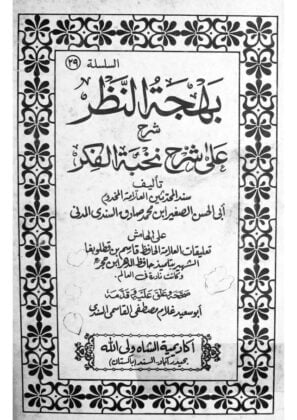 السلسلة ٢٩
بهجة النظر
شرح
على شرح نخبة الفكر
تأليف
سند المحدثين العلامة المخدوم
أبي الحسن الصغير ابن محمد صادق السندي المدني
على الهامش
تعليقات العلامة الحافظ قاسم بن قطلوبغا
الشهير بتلميذ حافظ الدهر ابن حجر
وكانت نادرة في العالم
صححه وعلق عليه وقدمه
أبو سعيد غلام مصطفى القاسمي السندي
أكاديمية الشاه ولي الله
بحيدرآباد السند (باكستان)